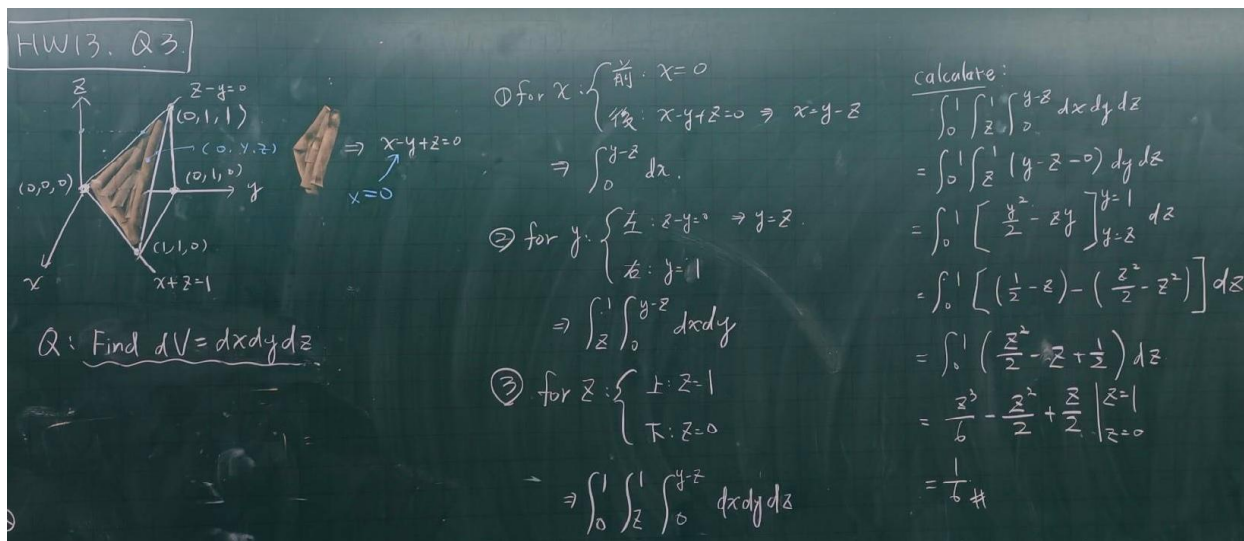 HW13. Q3.
z
z-y=0
(0,1,1)
(0,y,z)
(0,0,0)
(0,1,0)
y
(1,1,0)
x
x+z=1
⇒ x-y+z=0
x=0
Q: Find dV=dxdydz
① for x: { 前: x=0
後: x-y+z=0 ⇒ x=y-z
⇒ ∫_0^{y-z} dx.
② for y: { 左: z-y=0 ⇒ y=z.
右: y=1
⇒ ∫_z^1 ∫_0^{y-z} dxdy
③ for z: { 上: z=1
下: z=0
⇒ ∫_0^1 ∫_z^1 ∫_0^{y-z} dxdydz
calculate:
∫_0^1 ∫_z^1 ∫_0^{y-z} dxdydz
= ∫_0^1 ∫_z^1 (y-z-0) dydz
= ∫_0^1 [y²/2 - zy]_{y=z}^{y=1} dz
= ∫_0^1 [(1/2 - z) - (z²/2 - z²)] dz
= ∫_0^1 (z²/2 - z + 1/2) dz
= z³/6 - z²/2 + z/2 |_{z=0}^{z=1}
= 1/6 #